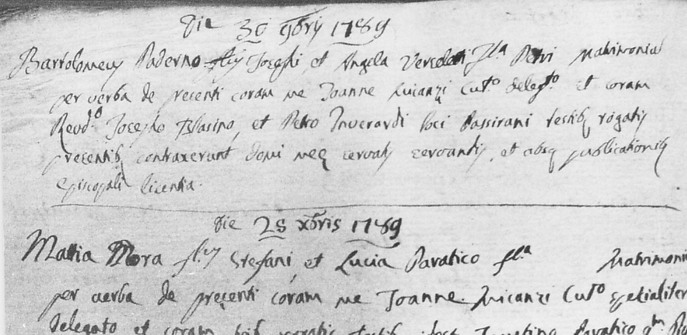 Die 30 9bris 1789
Bartolomeus Paderno fil: Josephi et Angela Vercelati fil.a Petri Matrimoniu
per verba de presenti coram me Joanne Luianzi Cur.to deleg.to et coram
Revd.o Josepho Blasino, et Petro Inverardi loci Passirani testib rogatis
presentib contraxerunt domi mee servatis servandis, et absq publicationib
Episcopali licentia.
Die 28 xbris 1789
Mattia Mora Stefani, et Lucia Pavatico fil.a Matrimoni
per verba de presenti coram me Joanne Cur.to spetialiter
delegato et coram